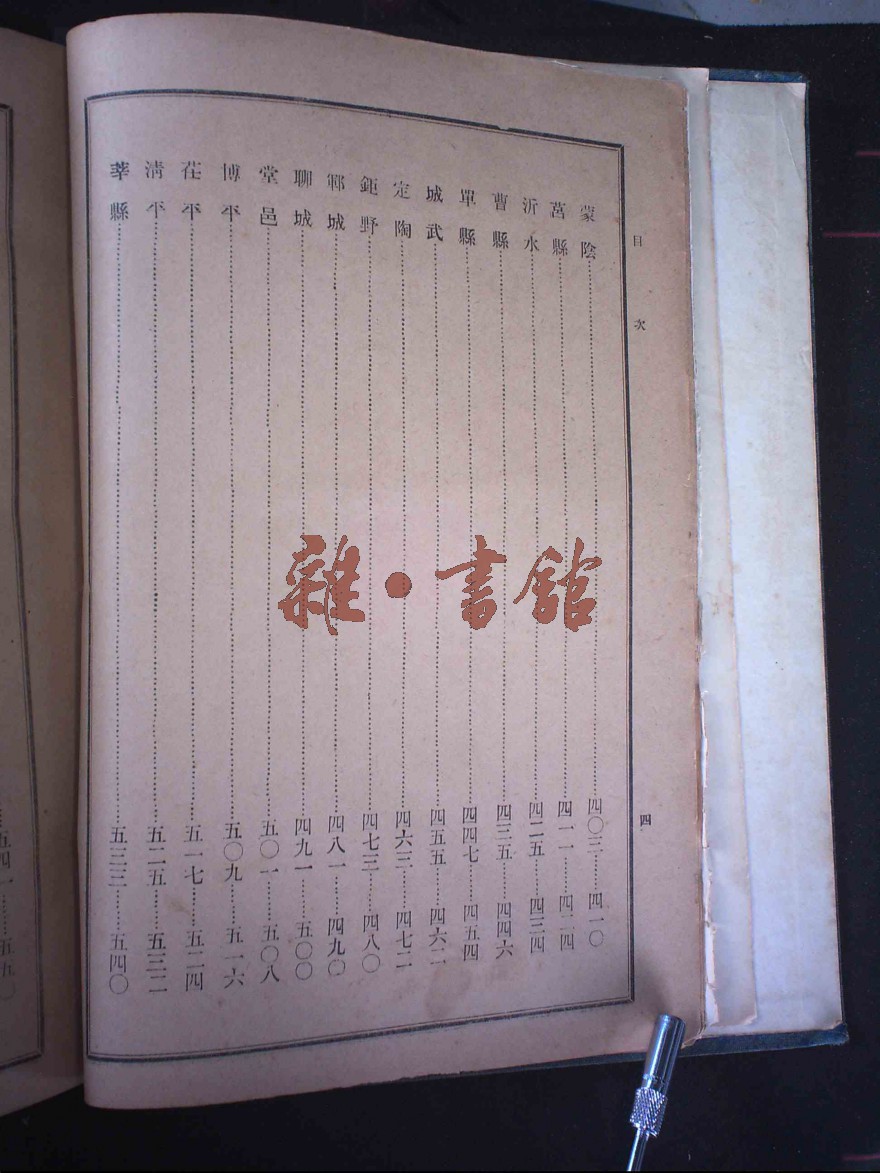 目次 四
蒙陰……四〇三……四一〇
莒縣……四一一……四二四
沂水……四二五……四三四
曹縣……四三五……四四六
單縣……四四七……四五四
城武……四五五……四六二
定陶……四六三……四七二
鉅野……四七三……四八〇
鄆城……四八一……四九〇
聊城……四九一……五〇〇
堂邑……五〇一……五〇八
博平……五〇九……五一六
茌平……五一七……五二四
清平……五二五……五三二
莘縣……五三三……五四〇
五四一……五五〇
雜·書館